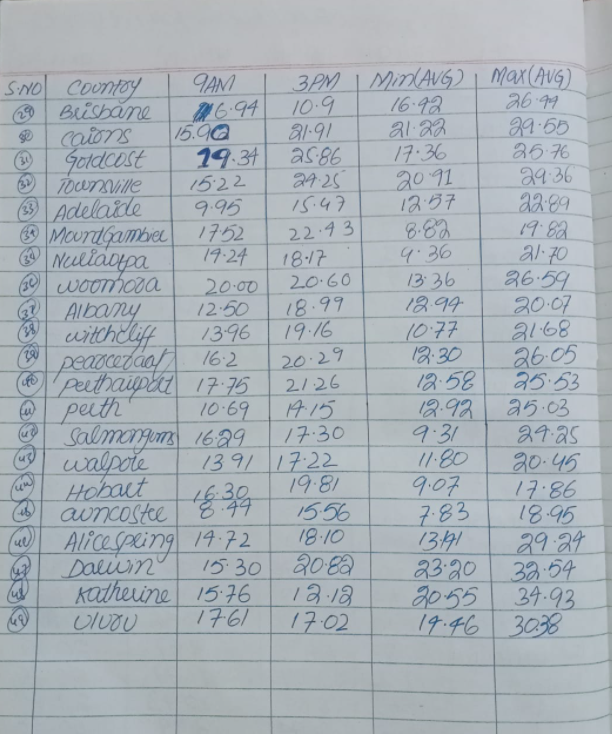 S.NO Country 9AM 3PM Min(AVG) Max(AVG)
29 Brisbane 16.94 10.9 16.92 26.44
30 cairns 15.90 21.91 21.22 29.55
31 Goldcost 19.34 25.86 17.36 25.76
32 Townsville 15.22 24.25 20.91 29.36
33 Adelaide 9.95 15.47 12.57 22.89
34 MountGambier 17.52 22.43 8.82 19.82
Nuriaotpa 14.24 18.17 9.36 21.70
36 woomora 20.00 20.60 13.36 26.59
37 Albany 12.50 18.99 12.94 20.07
38 witchcliff 13.96 19.16 10.77 21.68
39 pearceraaf 16.2 20.29 12.30 26.05
40 perthairport 17.75 21.26 12.58 25.53
41 perth 10.69 14.15 12.92 25.03
42 Salmongums 16.29 17.30 9.31 24.25
43 walpole 13.91 17.22 11.80 20.45
44 Hobart 16.30 19.81 9.07 17.86
45 8.44 15.56 7.83 18.95
46 Alicespring 14.72 18.10 13.41 29.24
47 Darwin 15.30 20.82 23.20 32.54
48 Katherine 15.76 12.12 20.55 34.93
49 Uluru 17.61 17.02 14.46 30.38